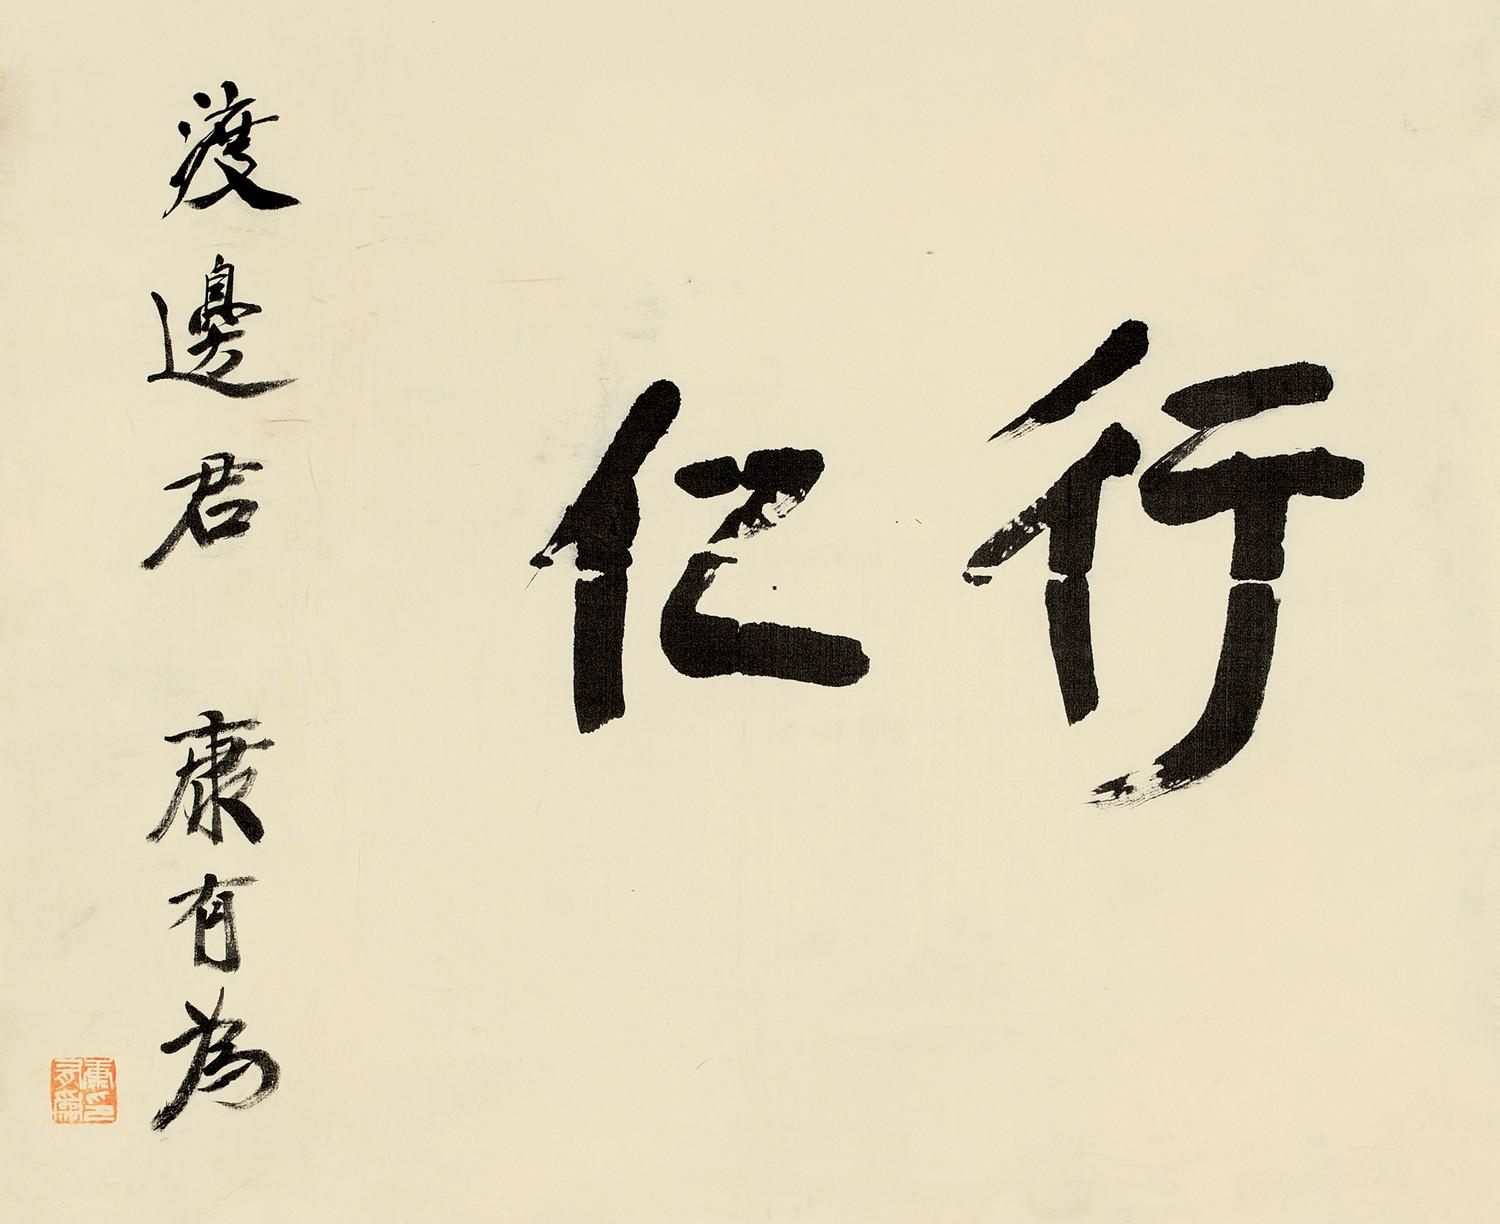 行仁
渡邊君 康有為
康有為印